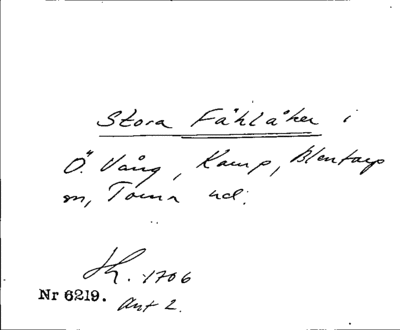 Stora Fåhlåker i
Ö. Vång, Kamp, Blentarp
m, Torna hd.
Sk. 1706
Nr 6219. Akt 2.